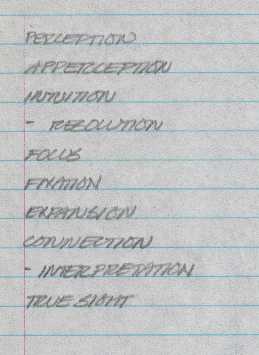 PERCEPTION
APPERCEPTION
INTUITION
- RESOLUTION
FOCUS
FIXATION
EXPANSION
CONNECTION
- INTERPRETATION
TRUE SIGHT